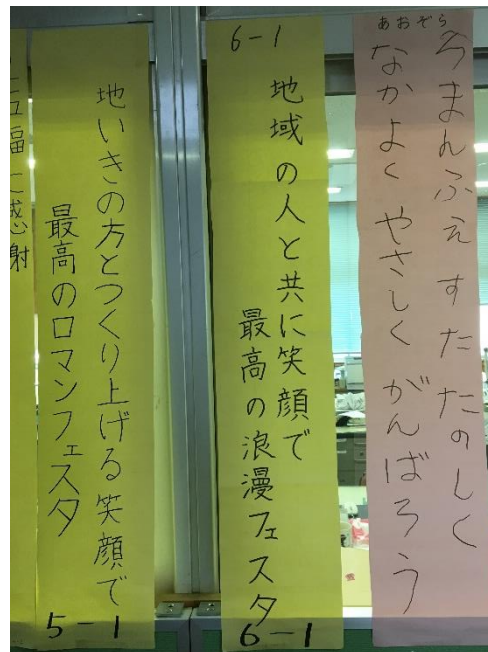 あおぞら
ろまんふぇすたたのしく
なかよく やさしく がんばろう
6-1
地域の人と共に笑顔で
最高の浪漫フェスタ
6-1
地いきの方とつくり上げる笑顔で
最高のロマンフェスタ
5-1
五福に感謝